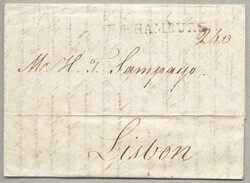 HAMBURG
240
Mr H. T. Sampayo.
Lisbon